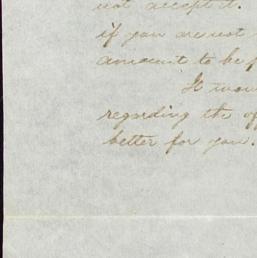 not accept it.
if you are not
amount to be
It wou
regarding the of
better for you.